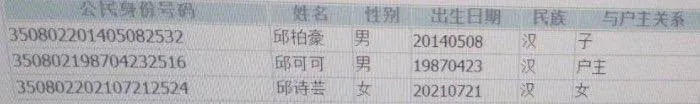 公民身份号码 姓名 性别 出生日期 民族 与户主关系
350802201405082532 邱柏豪 男 20140508 汉 子
350802198704232516 邱可可 男 19870423 汉 户主
350802202107212524 邱诗芸 女 20210721 汉 女